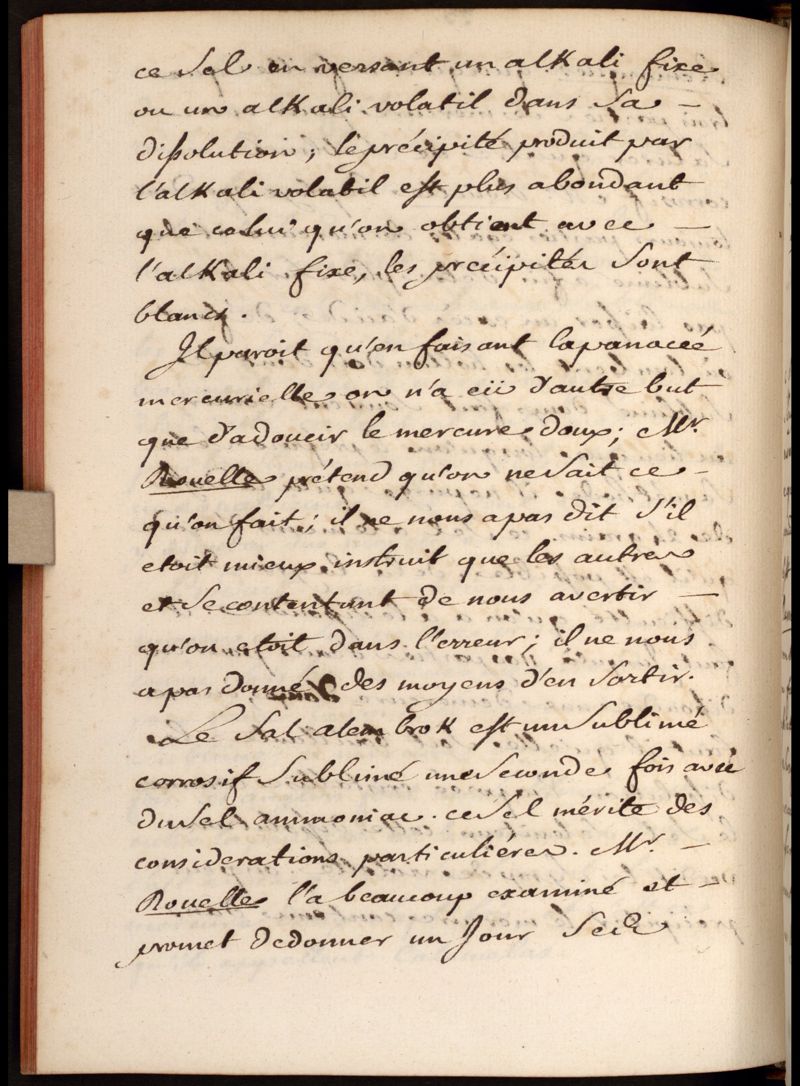 ce Sel en versant un alKali fixe
ou un alKali volatil dans Sa —
dissolution; le précipité produit par
l'alKali volatil est plus abondant
que celui qu'on obtient avec —
l'alKali fixe, les précipités Sont
blancs.
Il paroit qu'en faisant la panacée
mercurielle on n'a eü d'autre but
que d'adoucir le mercure doux; Mr.
Rouelle prétend qu'on ne Sait ce —
qu'on fait; il ne nous a pas dit S'il
etoit mieux instruit que les autres
et Se contentant de nous avertir —
qu'on etoit dans l'erreur; il ne nous
a pas donné des moyens d'en Sortir.
Le Sal alembroK est un Sublimé
corrosif Sublimé une Seconde fois avec
du Sel ammoniac. ce Sel mérite des
considerations particuliéres. Mr. —
Rouelle l'a beaucoup examiné et —
promet de donner un Jour Ses